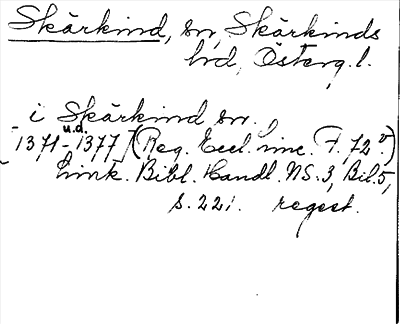 Skärkind, sn, Skärkinds
hd, Österg. l.
i Skärkind sn.
u.d.
[1371-1377] (Reg. Eccl. Linc. F. 72v.)
Link. Bibl. Handl. NS. 3, Bil. 5,
s. 221. regest.